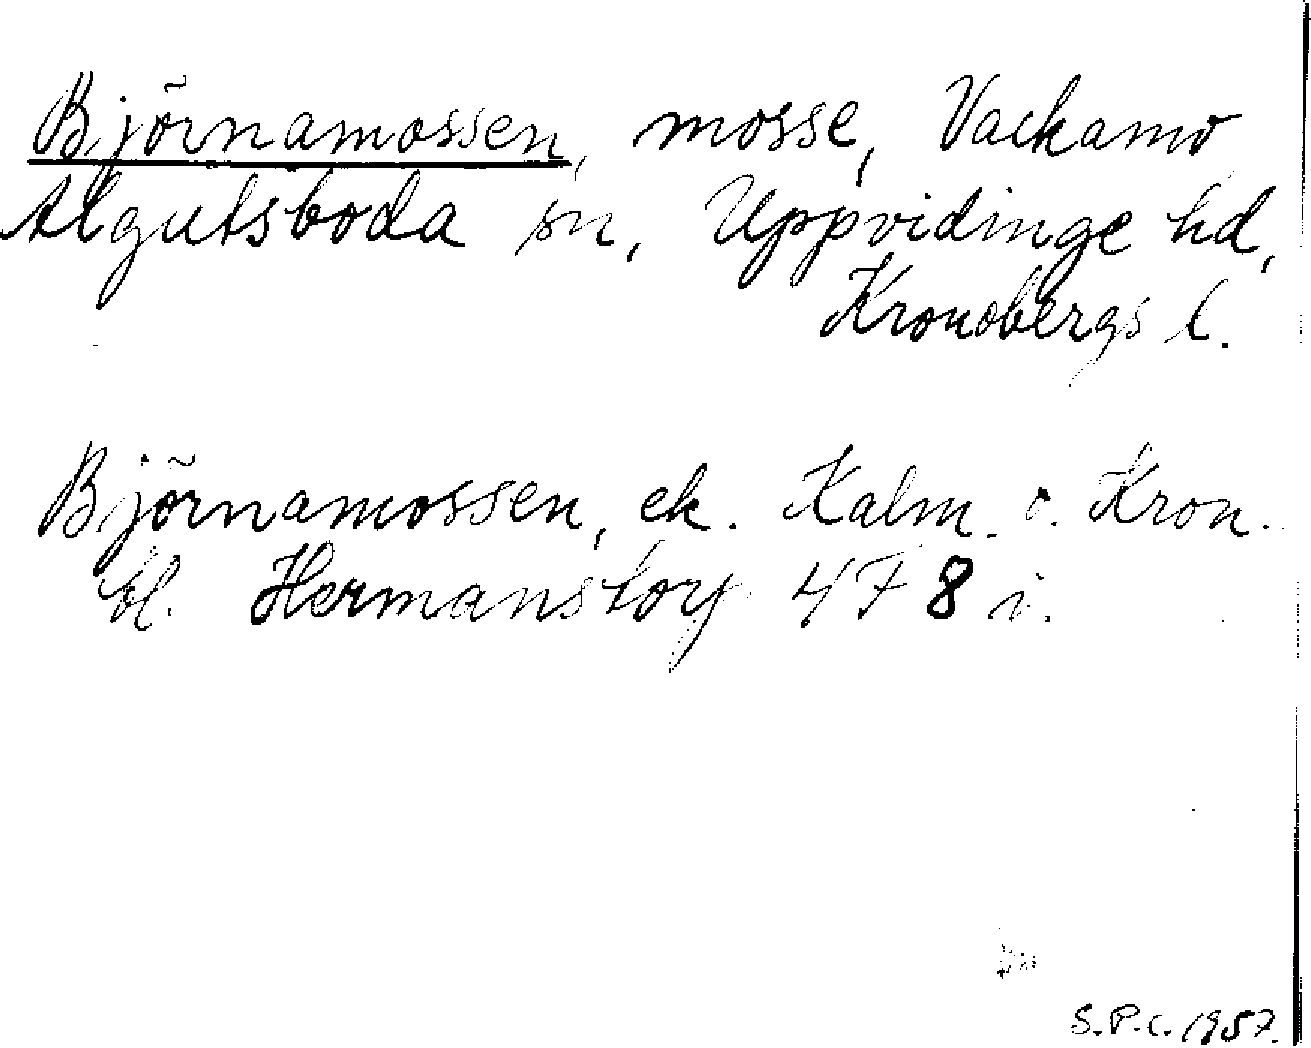 Björnamossen, mosse, Vackamo
Algutsboda sn, Uppvidinge hd,
Kronobergs l.
Björnamossen, ek. Kalm. o. Kron.
bl. Hermanstorp 4 F 8 i.
S.P.C. 1957.